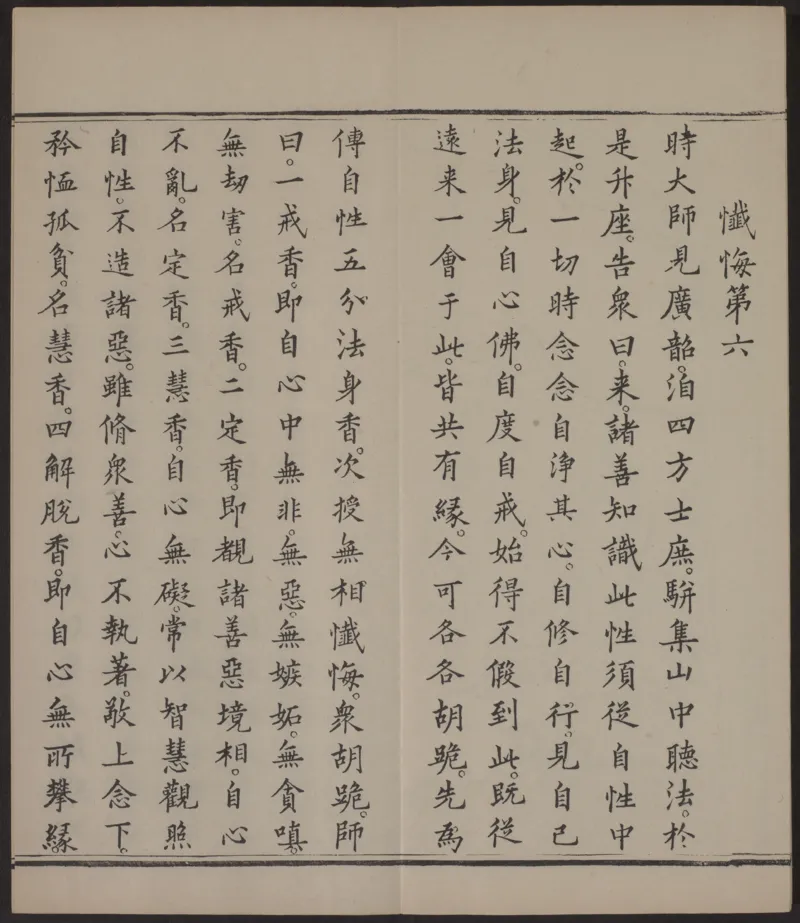 懺悔第六
時大師見廣韶。洎四方士庶。駢集山中聽法。於
是升座。告衆曰。来。諸善知識此性須從自性中
起。於一切時念念自淨其心。自修自行。見自己
法身。見自心佛。自度自戒。始得不假到此。既從
遠来一會于此。皆共有緣。今可各各胡跪。先爲
傳自性五分法身香。次授無相懺悔。衆胡跪。師
曰。一戒香。即自心中無非。無惡。無嫉妬。無貪嗔。
無刧害。名戒香。二定香。即覩諸善惡境相。自心
不亂。名定香。三慧香。自心無礙。常以智慧觀照
自性。不造諸惡。雖脩衆善。心不執著。敬上念下。
矜恤孤貧。名慧香。四解脫香。即自心無所攀緣。